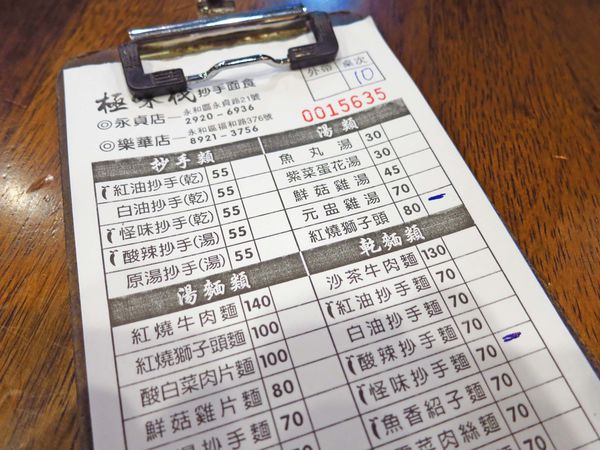 極味棧抄手麵食
外帶 桌次
10
◎永貞店—永和區永貞路21號
2920-6936
◎樂華店—永和區福和路376號
8921-3756
0015635
抄手類
紅油抄手(乾) 55
白油抄手(乾) 55
怪味抄手(乾) 55
酸辣抄手(湯) 55
原湯抄手(湯) 55
湯類
魚丸湯 30
紫菜蛋花湯 30
鮮菇雞湯 45
元盅雞湯 70
紅燒獅子頭 80
湯麵類
紅燒牛肉麵 140
紅燒獅子頭麵 100
酸白菜肉片麵 100
鮮菇雞片麵 80
抄手麵 70
乾麵類
沙茶牛肉麵 130
紅油抄手麵 70
白油抄手麵 70
酸辣抄手麵 70
怪味抄手麵 70
魚香紹子麵 70
菜肉絲麵 70